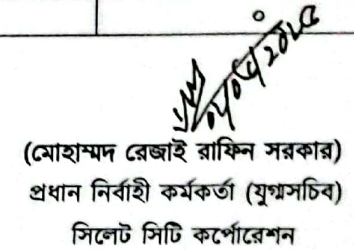 (মোহাম্মদ রেজাই রাফিন সরকার)
প্রধান নির্বাহী কর্মকর্তা (যুগ্মসচিব)
সিলেট সিটি কর্পোরেশন